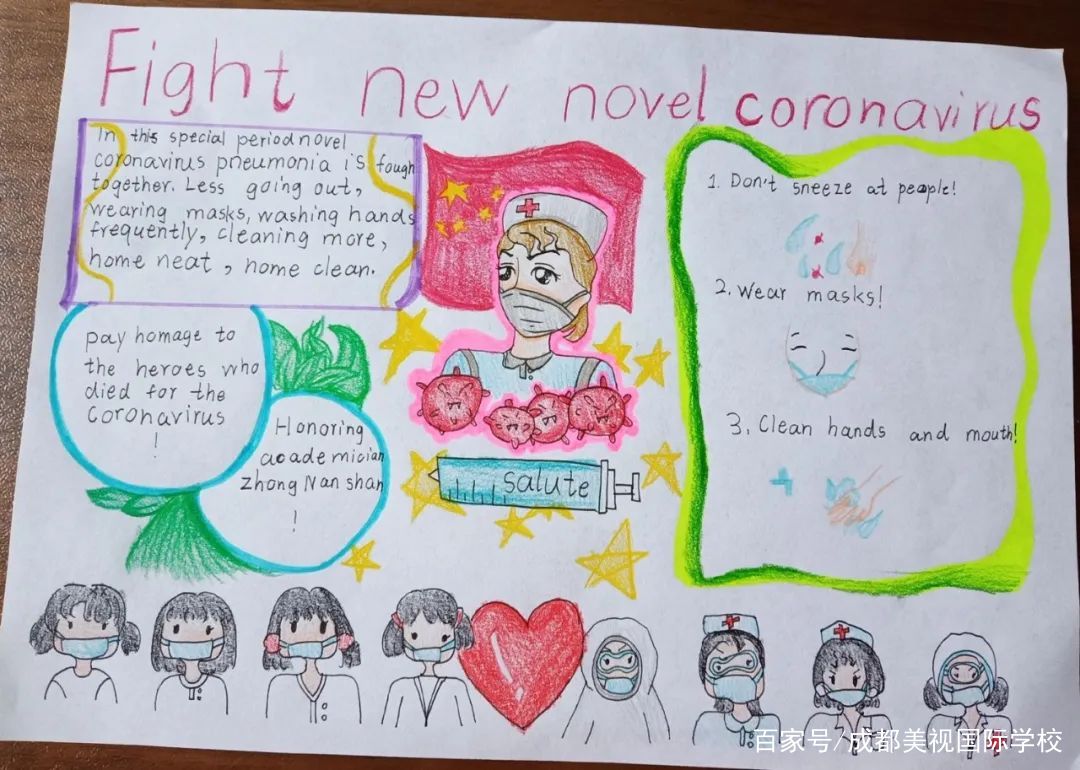 Fight new novel coronavirus
In this special period novel
coronavirus pneumonia is fough
together. Less going out,
wearing masks, washing hands
frequently, cleaning more,
home neat, home clean.
pay homage to
the heroes who
died for the
coronavirus
!
Honoring
academician
zhong Nan shan
!
salute
1. Don't sneeze at people!
2. wear masks!
3. Clean hands and mouth!
百家号/成都美视国际学校